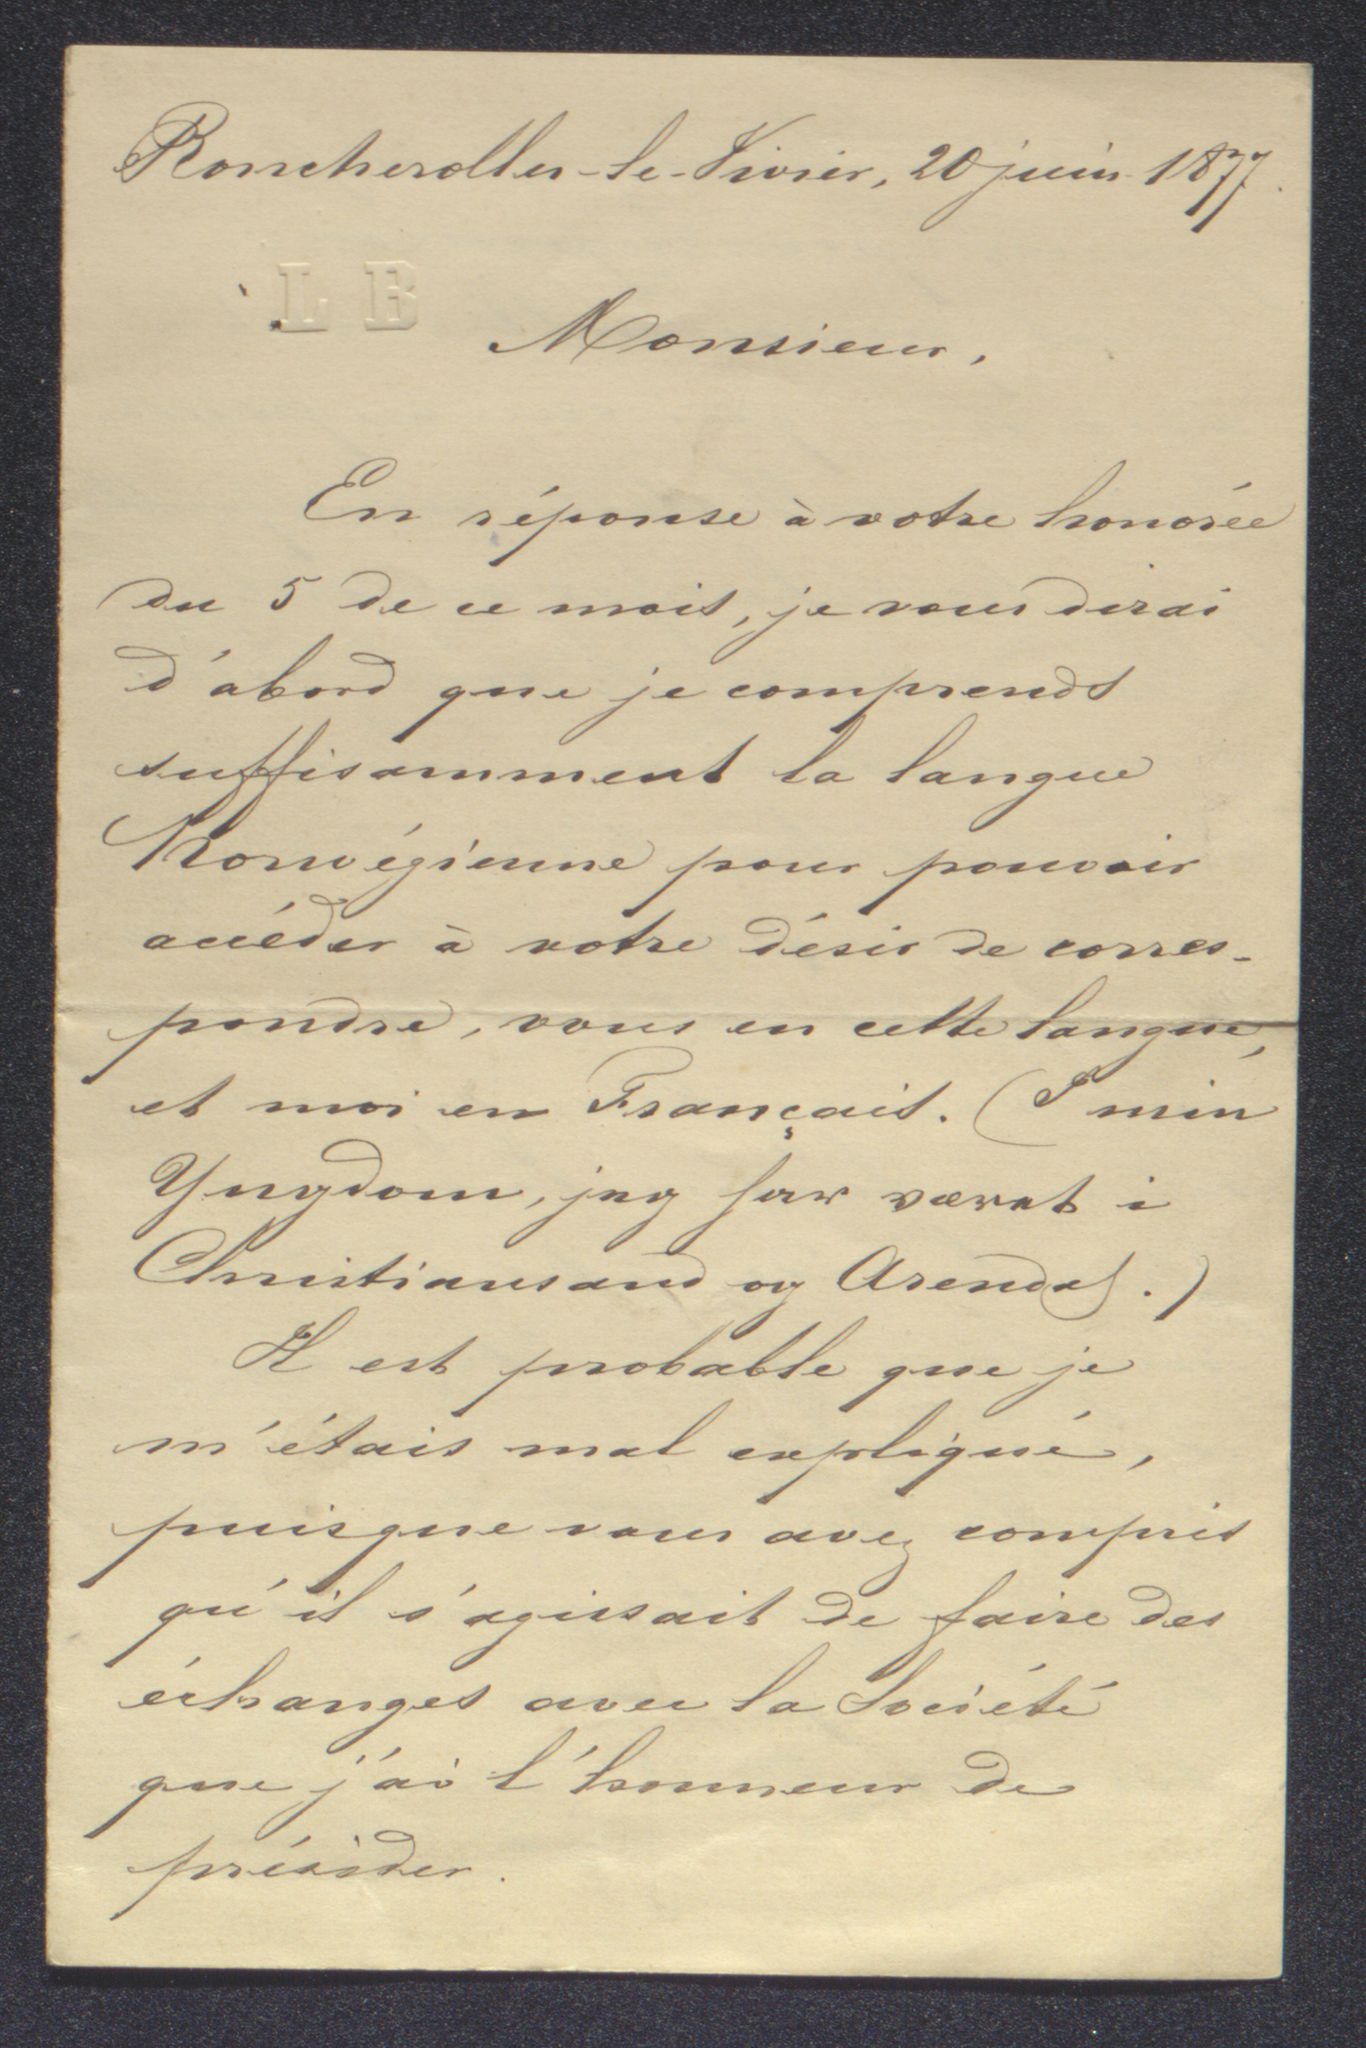 Roncherolles-le-Vivier, 20 juin 1877.
L B
Monsieur,
En réponse à votre honorée
du 5 de ce mois, je vous dirai
d'abord que je comprends
suffisamment la langue
Norwégienne pour pouvoir
accéder à votre désir de corres-
pondre, vous en cette langue,
et moi en Français. (I min
Yngdom, jeg har været i
Christiansand og Arendal.)
Il est probable que je
m'étais mal expliqué,
puisque vous avez compris
qu'il s'agissait de faire des
échanges avec la Société
que j'ai l'honneur de
présider.